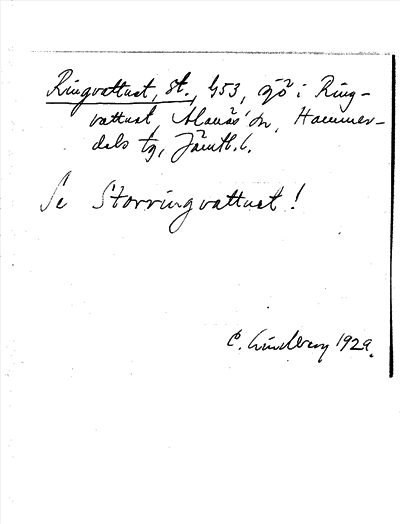 Ringvattnet, St., 453, sjö i Ring-
vattnet, Alanäs sn, Hammer-
dals tg, Jämtl. l.
Se Storringvattnet!
C. Lindberg 1929.